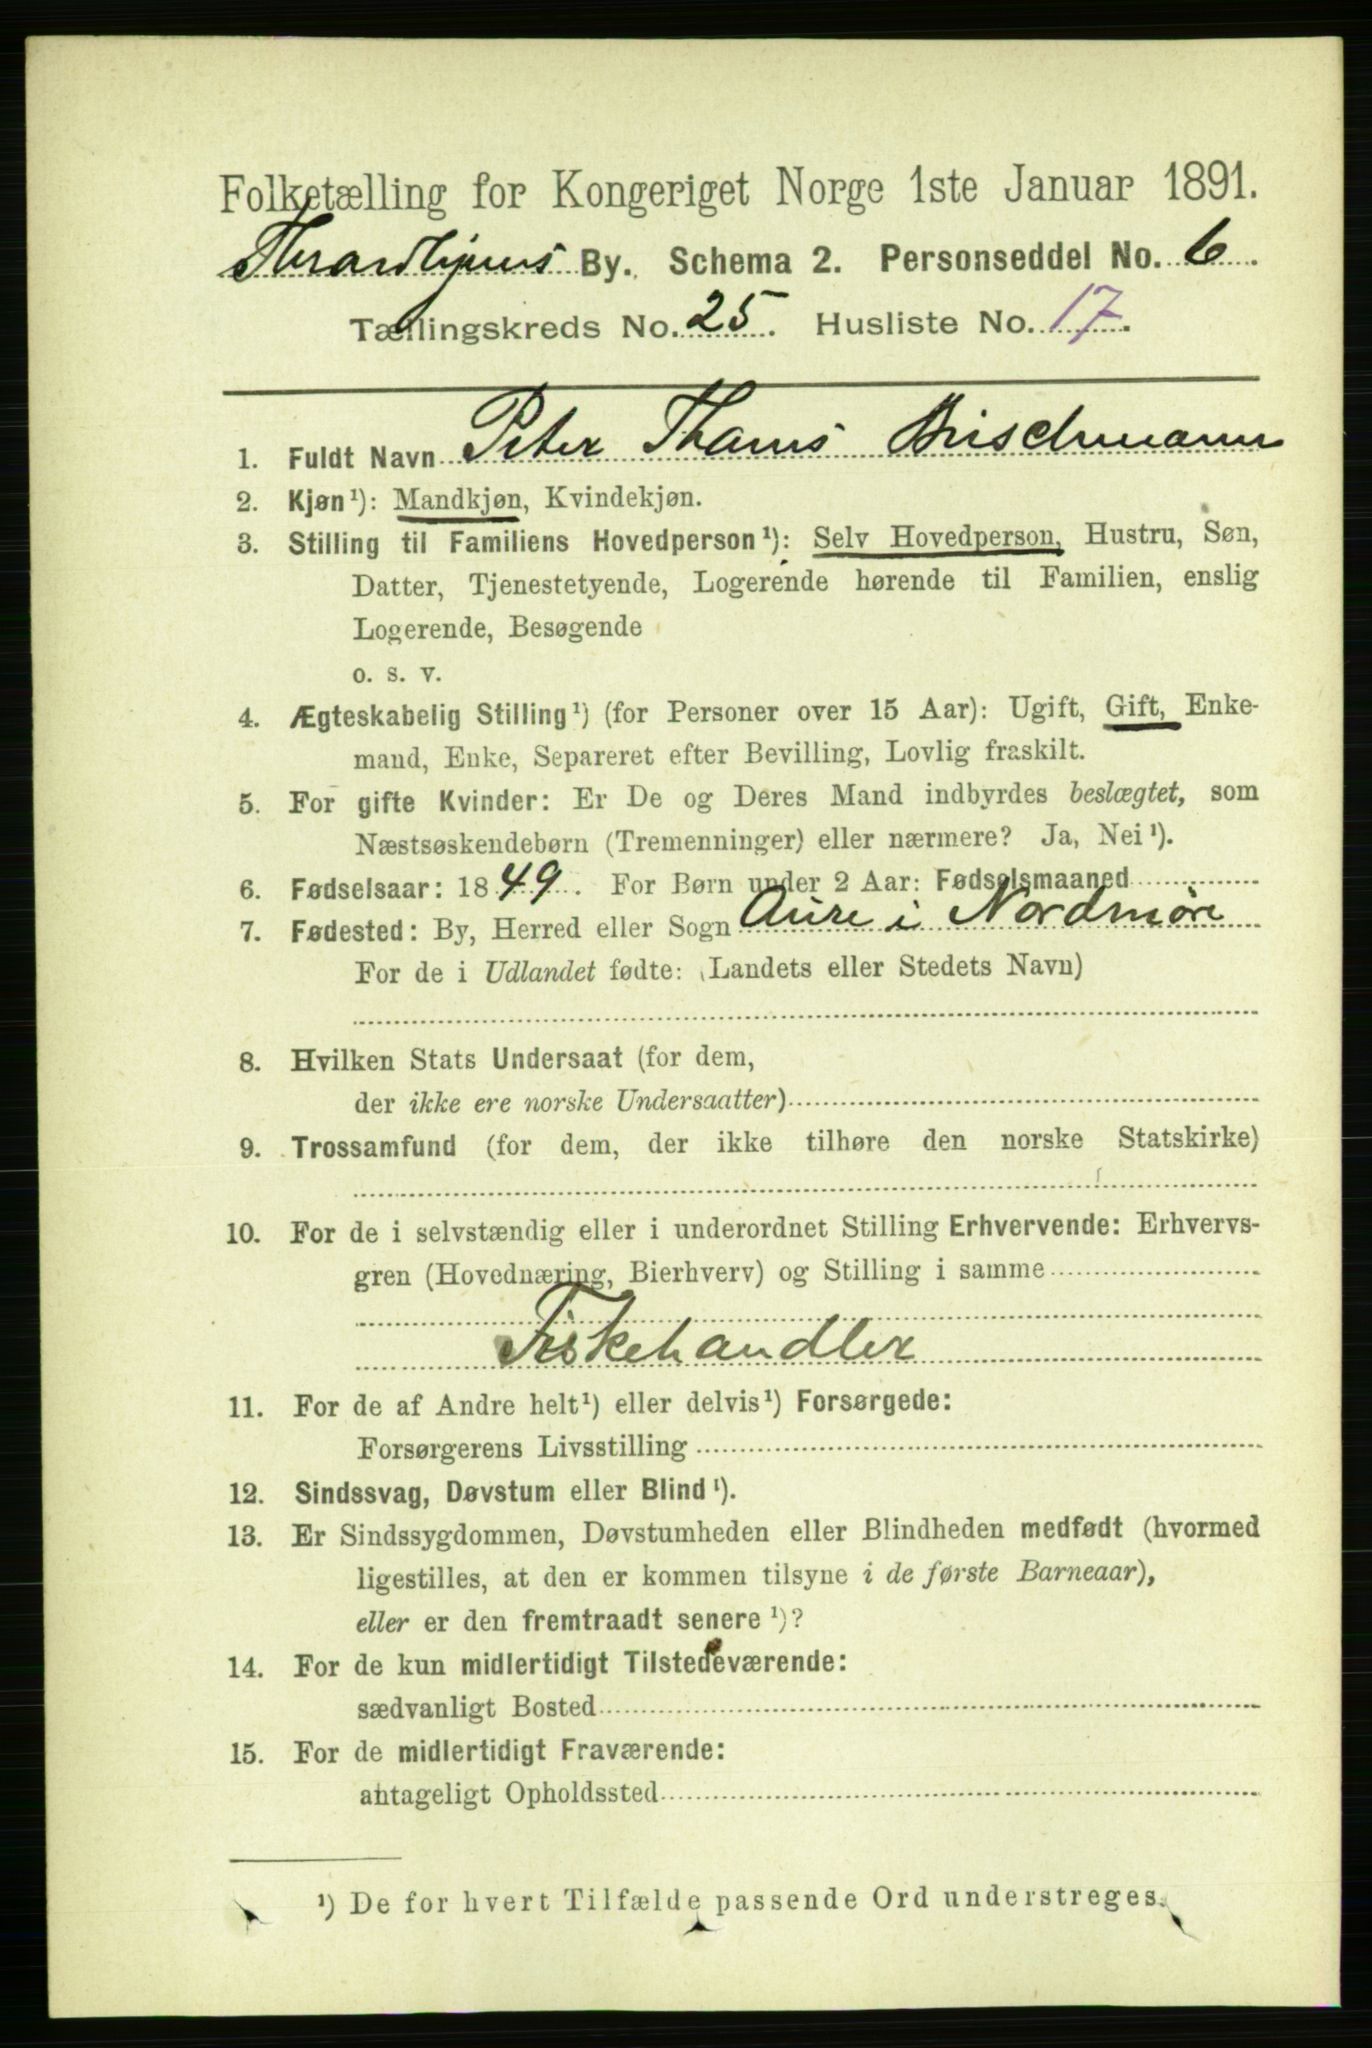 Folketælling for Kongeriget Norge 1ste Januar 1891.
Throndhjems By. Schema 2. Personseddel No. 6.
Tællingskreds No. 25. Husliste No. 17.
1. Fuldt Navn Peter Thams Brischmann
2. Kjøn¹): Mandkjøn, Kvindekjøn.
3. Stilling til Familiens Hovedperson¹): Selv Hovedperson, Hustru, Søn,
Datter, Tjenestetyende, Logerende hørende til Familien, enslig
Logerende, Besøgende
o. s. v.
4. Ægteskabelig Stilling¹) (for Personer over 15 Aar): Ugift, Gift, Enke-
mand, Enke, Separeret efter Bevilling, Lovlig fraskilt.
5. For gifte Kvinder: Er De og Deres Mand indbyrdes beslægtet, som
Næstsøskendebørn (Tremenninger) eller nærmere? Ja, Nei¹).
6. Fødselsaar: 1849. For Børn under 2 Aar: Fødselsmaaned
7. Fødested: By, Herred eller Sogn Aure i Nordmøre
For de i Udlandet fødte: (Landets eller Stedets Navn)
8. Hvilken Stats Undersaat (for dem,
der ikke ere norske Undersaatter)
9. Trossamfund (for dem, der ikke tilhøre den norske Statskirke)
10. For de i selvstændig eller i underordnet Stilling Erhvervende: Erhvervs-
gren (Hovednæring, Bierhverv) og Stilling i samme
Fiskehandler
11. For de af Andre helt¹) eller delvis¹) Forsørgede:
Forsørgerens Livsstilling
12. Sindssvag, Døvstum eller Blind¹).
13. Er Sindssygdommen, Døvstumheden eller Blindheden medfødt (hvormed
ligestilles, at den er kommen tilsyne i de første Barneaar),
eller er den fremtraadt senere¹)?
14. For de kun midlertidigt Tilstedeværende:
sædvanligt Bosted
15. For de midlertidigt Fraværende:
antageligt Opholdssted
¹) De for hvert Tilfælde passende Ord understreges.